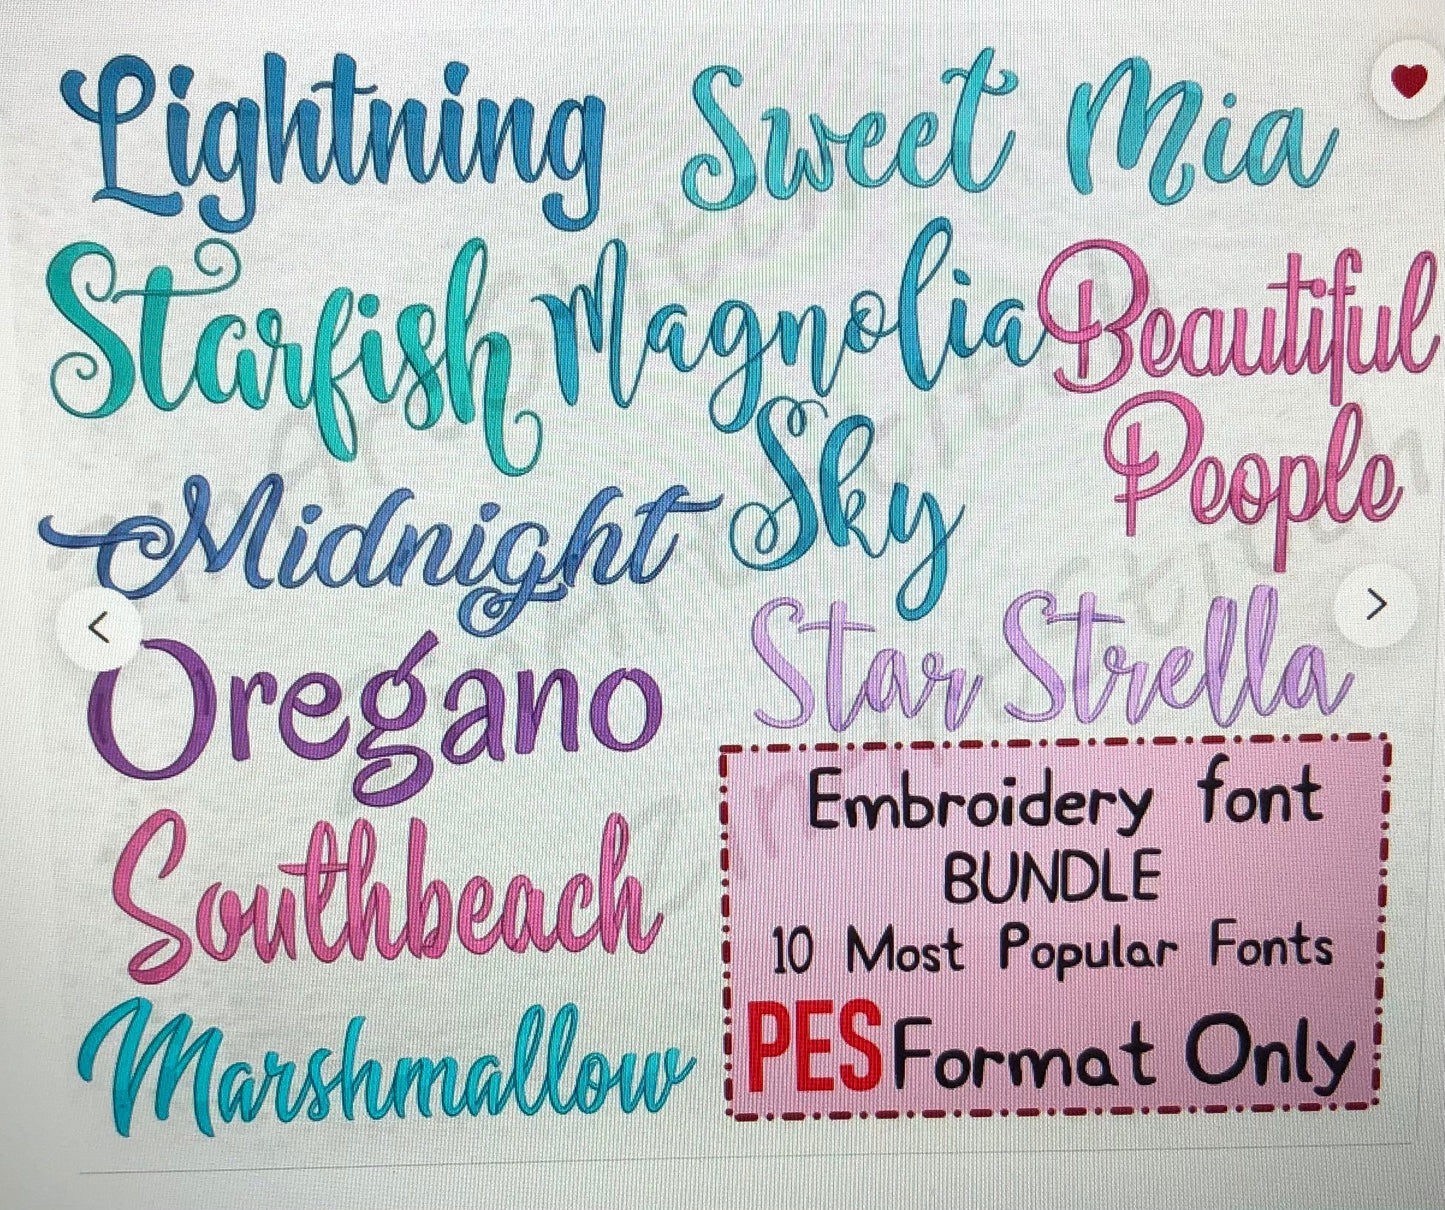 Lightning
Sweet Mia
Starfish
Magnolia
Sky
Beautiful
People
Midnight
Oregano
Star Strella
Southbeach
Marshmallow
Embroidery font
BUNDLE
10 Most Popular Fonts
PES Format Only